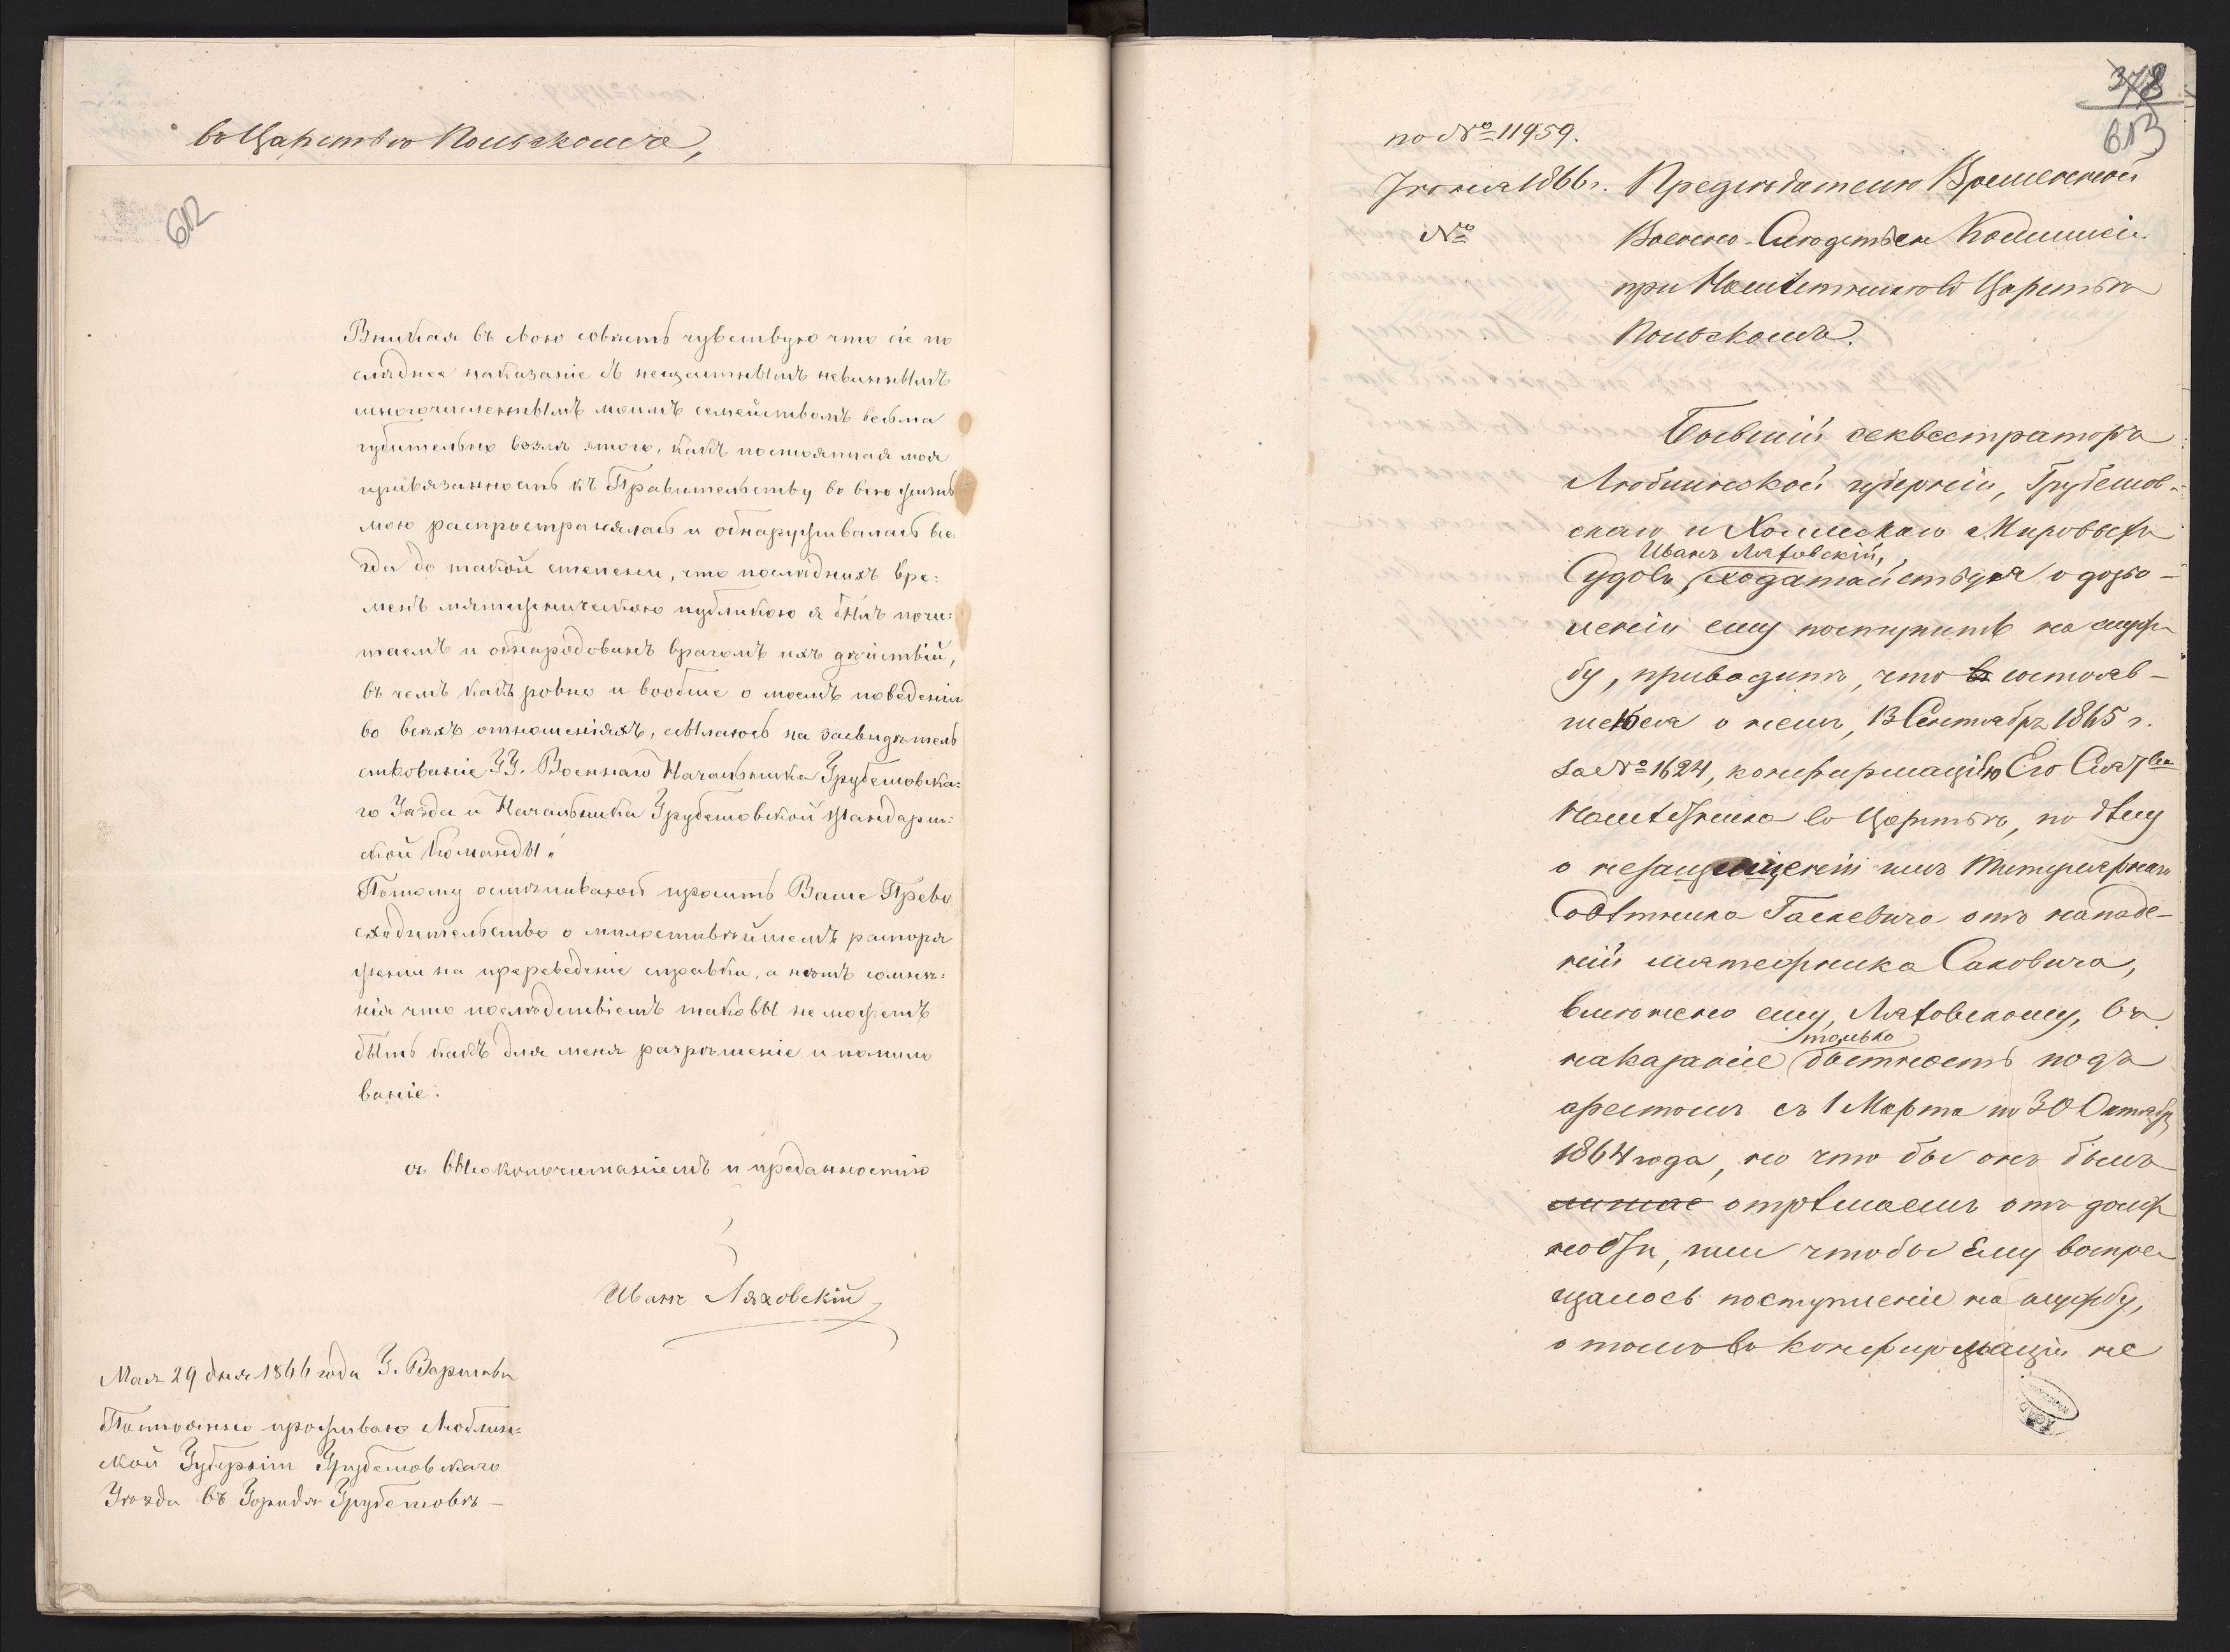 въ Царствѣ Польскомъ,
612
Вникая въ мою совѣсть чувствую что сіе по
слѣднее наказаніе съ нещастнымъ невиннымъ
многочисленнымъ моимъ семействомъ весьма
губительно возлѣ этого, какъ постоянная моя
привязанность къ Правительству во всю жизнь
мою распространялась и обнаруживалась все
гда до такой степени, что послѣднихъ вре:
менъ мятежническою публикою я былъ почи:
таемъ и обнародованъ врагомъ ихъ дѣйствій,
въ чемъ какъ ровно и вообще о моемъ поведеніи
во всѣхъ отношеніяхъ, ссылаюсь на засвидѣтель
ствованіе ГГ. Военнаго Начальника Грубешовска:
го Уѣзда и Начальника Грубешовской Жандарм:
ской Команды.
Потому осмѣливаюсь просить Ваше Прево
сходительство о милостивѣйшемъ распоря
женіи на произведеніе справки, а нѣтъ сомнѣ:
нія что послѣдствіемъ таковы не можетъ
быть какъ для меня разрѣшеніе и помило
ваніе.
съ высокопочитаніемъ и преданностію
Иванъ Ляховскій
Мая 29 дня 1866 года Г. Варшава
Постоянно проживаю Люблин=
ской Губерніи Грубешовскаго
Уѣзда въ Городѣ Грубешовѣ —
378
613
по № 11959.
Іюня 1866 г.
№
Предсѣдателю Временной
Военно-Слѣдствен Коммисіи
при Намѣстникѣ въ Царствѣ
Польскомъ.
Бывшій секвестраторъ
Люблинской губерніи, Грубешов-
скаго и Холмскаго Мировыхъ
Иванъ Ляховскій,
Судовъ, ходатайствуя о дозво-
леніи ему поступить на служ
бу, приводитъ, что въ состояв-
шейся о немъ, 13 Сентября 1865 г.
за № 1624, конфирмаціею Его Сіят ва
Намѣстника въ Царствѣ, по дѣлу
о незащищеніи имъ Титулярнаго
Совѣтника Гаскевича отъ нападе-
ній мятежника Саковича,
вмѣнено ему, Ляховскому, въ
только
наказаніе бытность подъ
арестомъ съ 1 Марта по 30 Октября
1864 года, но что бы онъ былъ
отрѣшаемъ отъ долж
ности, или чтобы ему воспре
щалось поступленіе на службу,
о томъ въ конфирмаціи не
AGAD